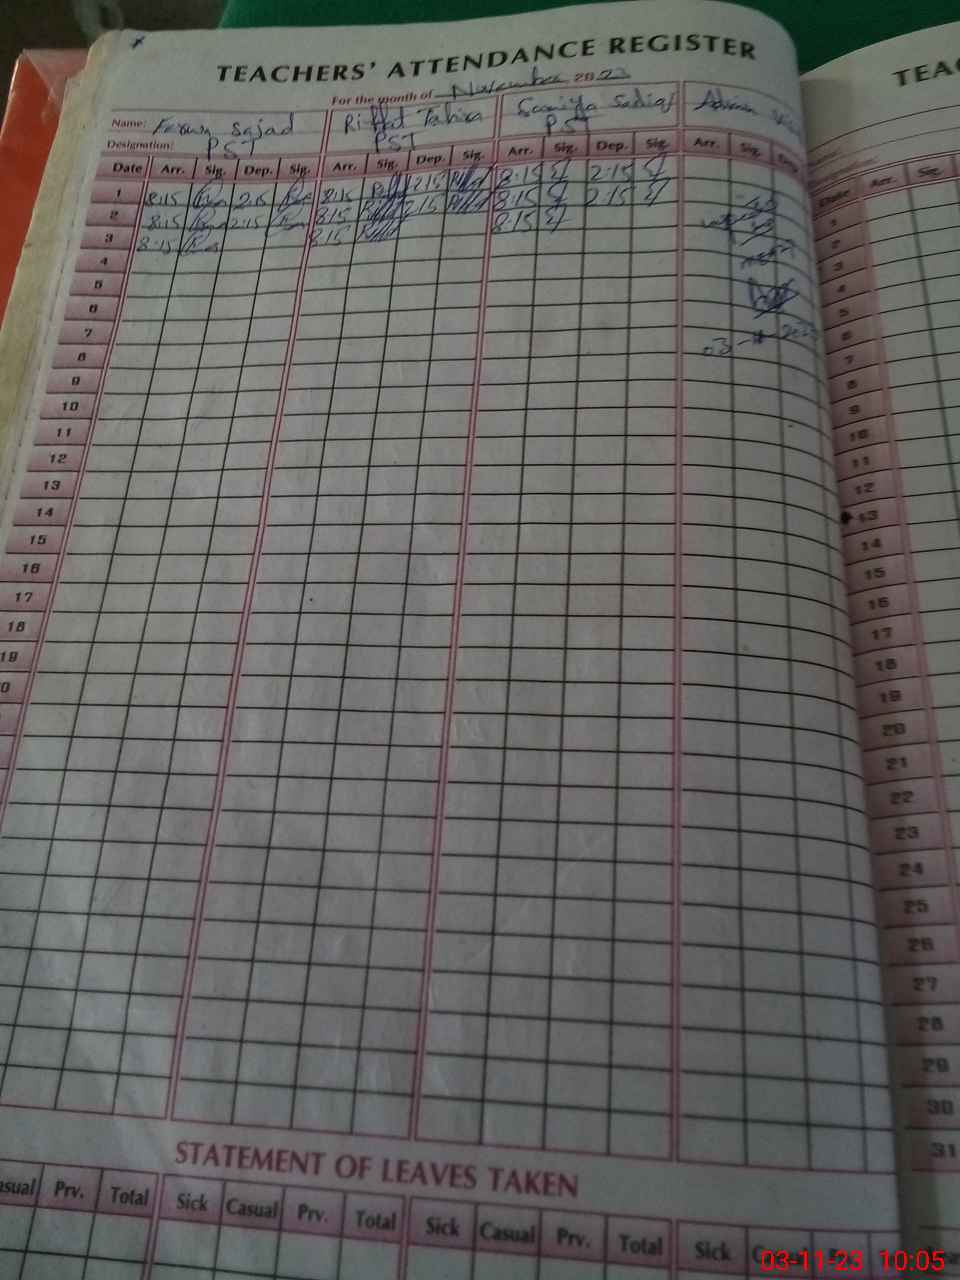 TEACHERS' ATTENDANCE REGISTER
For the month of November 2023
Name: Sajad Riffat Tahira Sadiq
Designation: PST PST PST
Date Arr. Sig. Dep. Sig. Arr. Sig. Dep. Sig. Arr. Sig. Dep. Sig. Arr. Sig. Dep.
1 8:15 2:15 8:15 2:15 8:15 2:15
2 8:15 2:15 8:15 2:15 8:15 2:15
3 8:15 8:15 8:15
4
5
6
7
8
9
10
11
12
13
14
15
16
17
18
19
STATEMENT OF LEAVES TAKEN
Prv. Total Sick Casual Prv. Total Sick Casual Prv. Total Sick
TEAC
Date Arr. Sig.
1
2
3
4
5
6
7
8
9
10
11
12
13
14
15
16
17
18
19
20
21
22
23
24
25
26
27
28
29
30
31
03-11-23 10:05